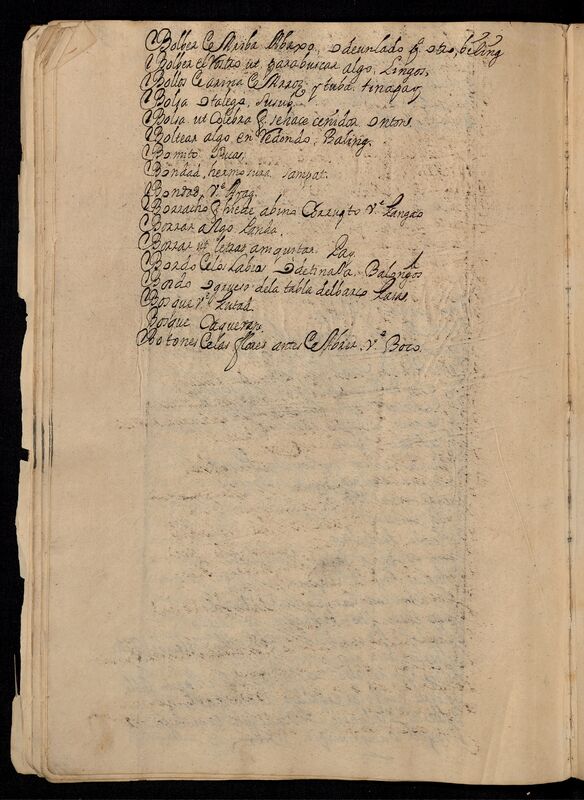 Bolber de Arriba Abaxo, o de un lado â otro, beling
Bolber el Rostro ut para buscar algo, Lingos,
Bollos de arina de Arroz y tuba. tinapay
Bolsa o talega, susuo
Bolsa ut culebra q̃ se hace cenidor ontong
Boltear algo en Redondo, Baling.
Bomito Suas.
Bondad, hermosura sampat.
Bondad, vᵉ
Borracho q̃ hiede a bino Corrupto vᵉ Langao
Borrar algo Landa.
Borrar ut letras am gustar Pag.
Bordo de los labios o de tinaxa, Balongos
Bordo o grueso de la tabla del barco Laras
Bosque vᵉ Lutad.
Bosque Caqueran,
Botones de las flores antes de Abrir vᵉ Boco.